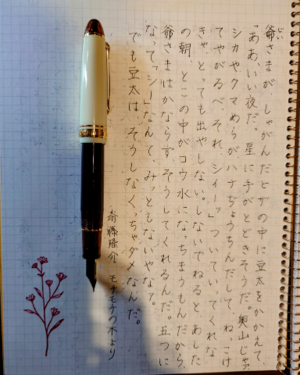 爺さまが、しゃがんだヒザの中に豆太をかかえて、
「ああ、いい夜だ。星に手がとどきそうだ。奥山じゃァ
シカやクマめらが、ハナぢょうちんだして、ねっこけ
てやがるべ。それ、シィーッ」っていってくれな
きゃ、とっても出やしない。しないでねると、あした
の朝、とこの中がコウ水になっちまうもんだから、
爺さまはかならず、そうしてくれるんだ。五つに
なって「シー」なんて、みっともないやなァ。
でも豆太は、そうしなくっちゃダメなんだ。
斎藤隆介 モチモチの木より